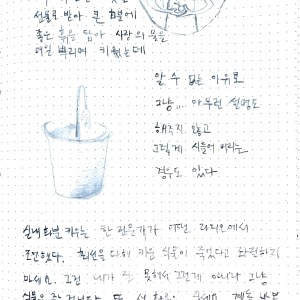 선물로 받아 큰 화분에
좋은 흙을 담아 사랑의 물을
더운 뿌리며 키웠는데
알 수 없는 이유로
그냥... 아무런 설명도
해주지 않고
그렇게 시들어 버리는
경우도 있다
실내 화분 키우는 한 전문가가 어떤 라디오에서
조언했다. 최선을 다해 키운 식물이 죽었다고 좌절하지
마세요. 그건 내가 잘 못해서 그런게 아니라 그냥
식물은 죽